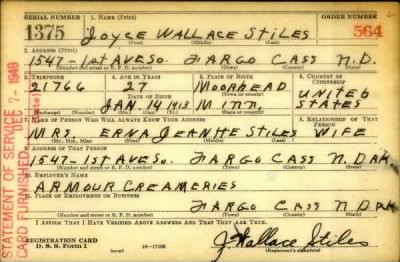 SERIAL NUMBER 1. NAME (Print) ORDER NUMBER
1375 JOYCE WALLACE STILES 564
(First) (Middle) (Last)
2. ADDRESS (Print)
1547-1ST AVE SO. FARGO CASS N.D.
(Number and street or R. F. D. number) (Town) (County) (State)
3. TELEPHONE 4. AGE IN YEARS 5. PLACE OF BIRTH 6. COUNTRY OF CITIZENSHIP
21766 27 MOORHEAD UNITED
DATE OF BIRTH
JAN. 14 1913 MINN. STATES
(Mo.) (Day) (Yr.) (State or country)
7. NAME OF PERSON WHO WILL ALWAYS KNOW YOUR ADDRESS 8. RELATIONSHIP OF THAT PERSON
MRS. ERNA JEANTTE STILES WIFE
(Mr., Mrs., Miss) (First) (Middle) (Last)
9. ADDRESS OF THAT PERSON
1547-1ST AVE SO. FARGO CASS N. DAK.
(Number and street or R. F. D. number) (Town) (County) (State)
10. EMPLOYER'S NAME
ARMOUR CREAMERIES
11. PLACE OF EMPLOYMENT OR BUSINESS
FARGO CASS N. DAK
(Number and street or R. F. D. number) (Town) (County) (State)
I AFFIRM THAT I HAVE VERIFIED ABOVE ANSWERS AND THAT THEY ARE TRUE.
REGISTRATION CARD
D. S. S. Form 1 16-17105 (Registrant's signature)
J. Wallace Stiles
STATEMENT OF SERVICE
CARD FURNISHED DEC 7- 1949